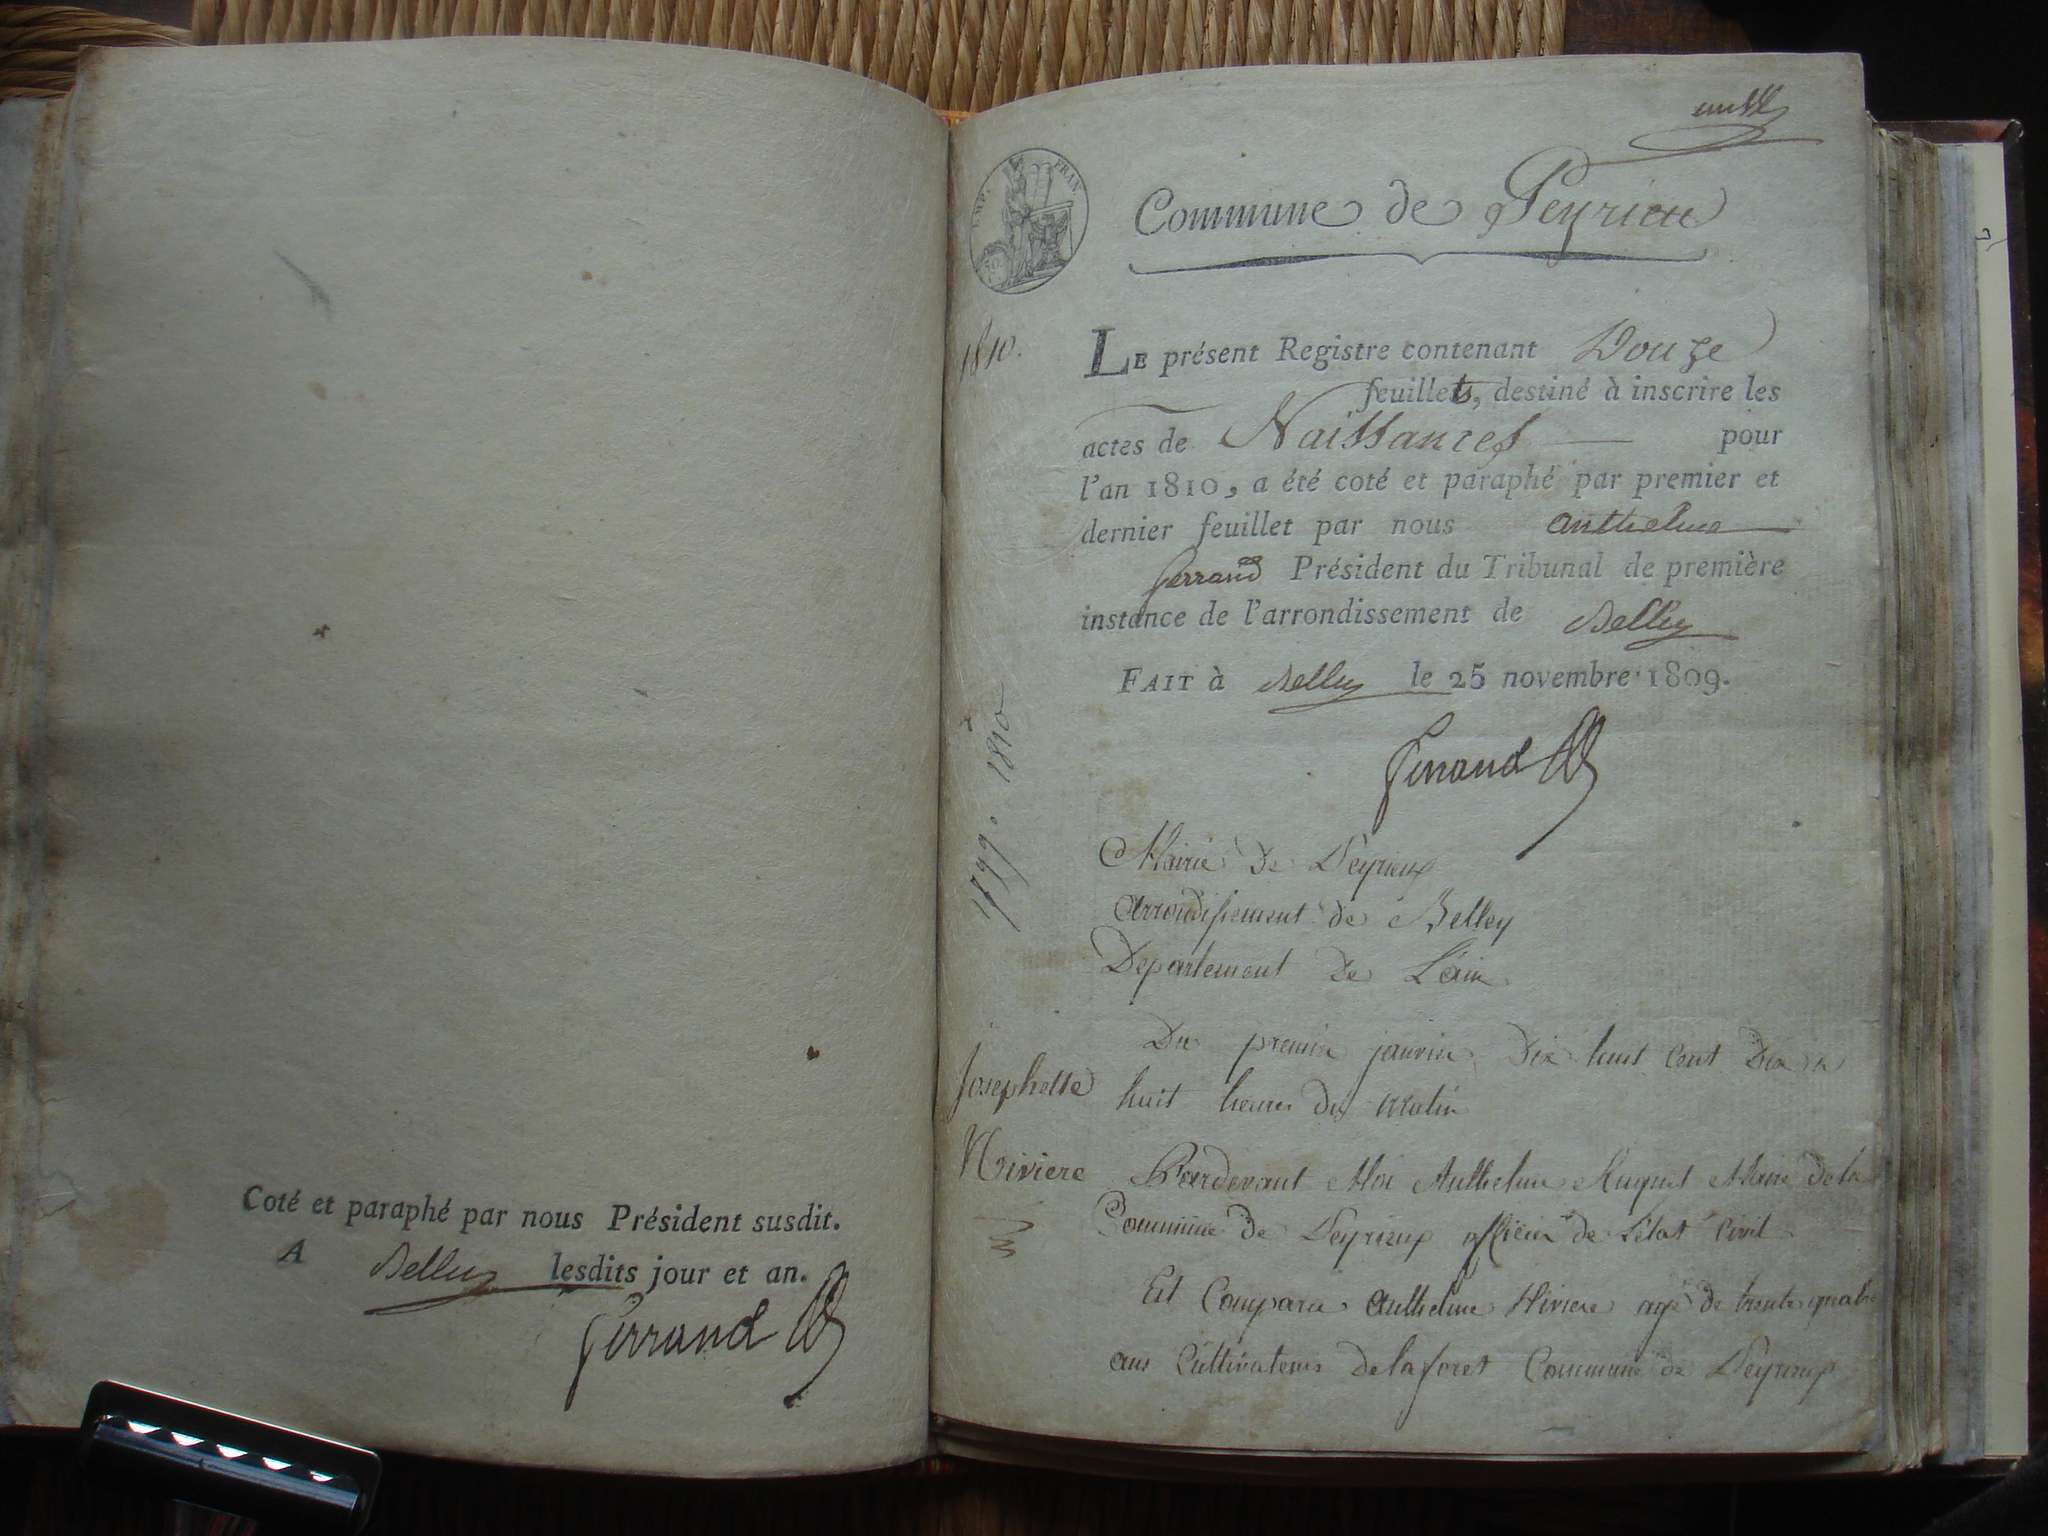 Coté et paraphé par nous Président susdit.
A Belley lesdits jour et an.
Ferrand
EMP. FRAN.
Commune de Peyrieu
1810.
LE présent Registre contenant Douze
feuillets, destiné à inscrire les
actes de Naissances pour
l'an 1810, a été coté et paraphé par premier et
dernier feuillet par nous Anthelme
Ferrand Président du Tribunal de première
instance de l'arrondissement de Belley
FAIT à Belley le 25 novembre 1809.
Ferrand
1799. à 1810
Mairie de Peyrieux
Arrondissement de Belley
Departement de L'ain
Du premier janvier Dix huit Cent Dix à
Josephette
huit heures du matin
Riviere
Pardevant Moi Anthelme Maire de la
Commune de Peyrieux officier de L'état Civil
Est Comparu Anthelme Riviere agé de trente quatre
ans Cultivateur de la foret Commune de Peyrieux